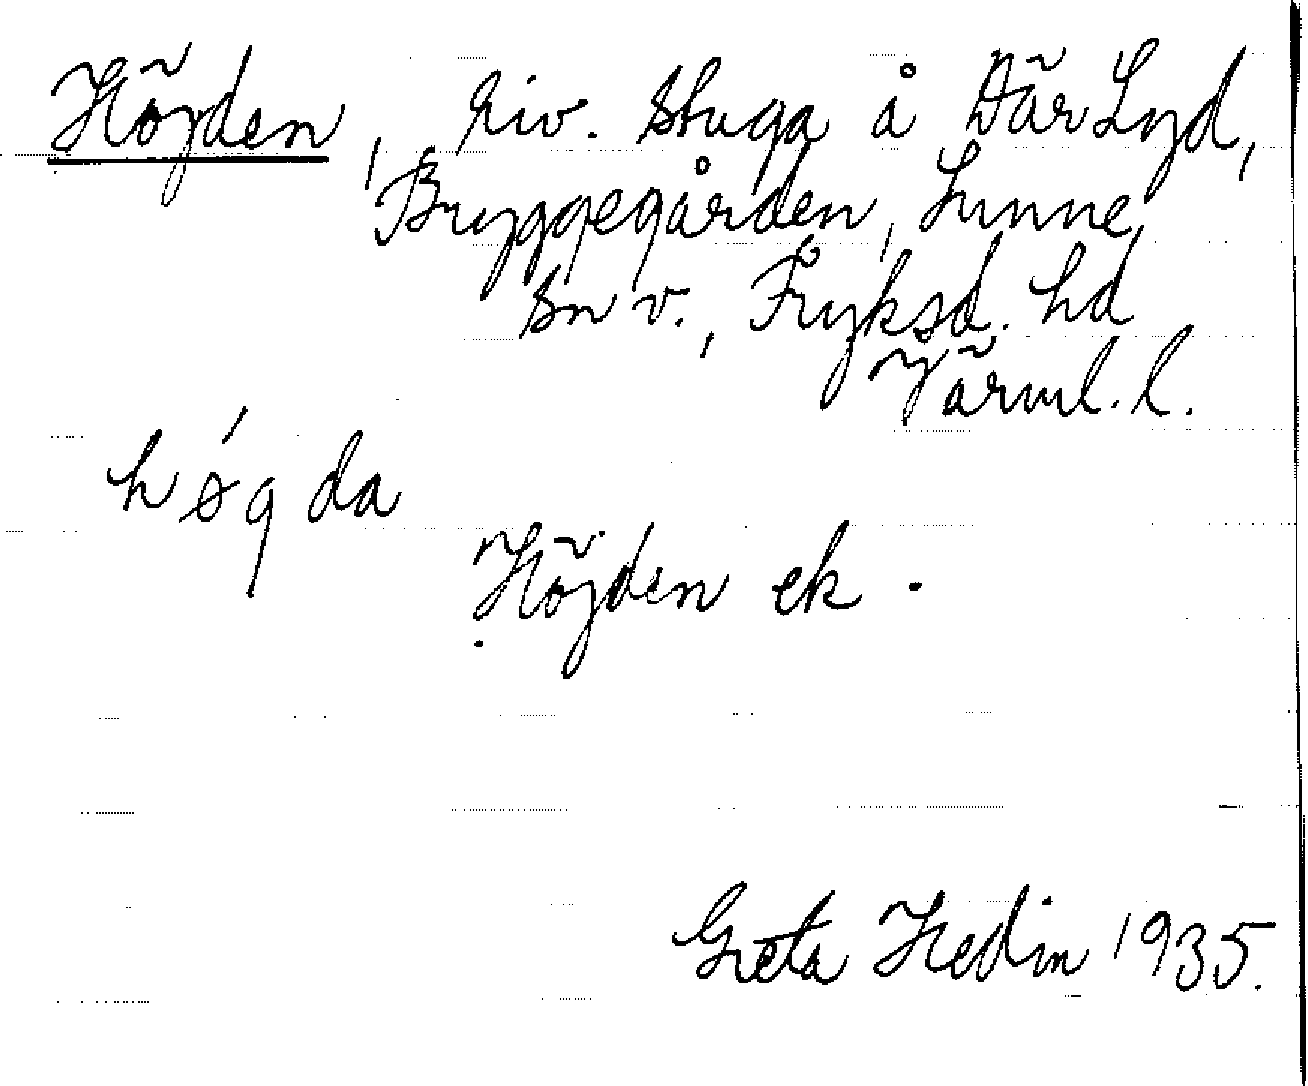 Höjden, riv. stuga å Där Syd,
Bryggegården, Sunne
sn v., Fryksd. hd
Värml. l.
hǿgda
Höjden ek.
Greta Hedin 1935.